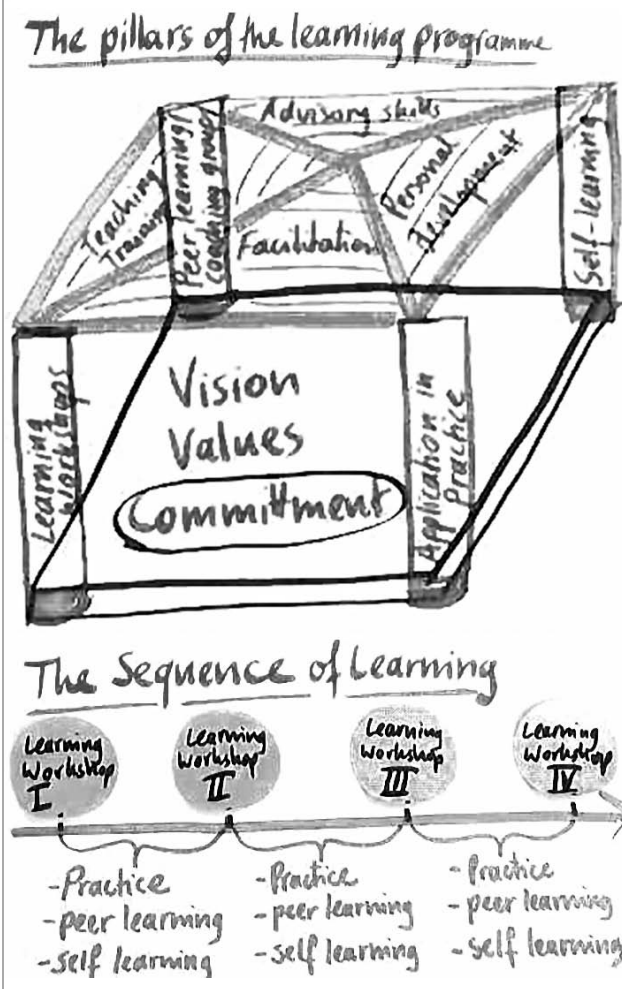 The pillars of the learning programme
Advisory skills
Teaching
Training
Peer learning/
coaching group
Facilitation
Personal
development
Self-learning
Learning
workshops
Vision
Values
Committment
Application in
Practice
The Sequence of Learning
Learning
Workshop
I
Learning
Workshop
II
Learning
Workshop
III
Learning
Workshop
IV
-Practice
-peer learning
-self learning
-Practice
-peer learning
-self learning
-Practice
-peer learning
-self learning